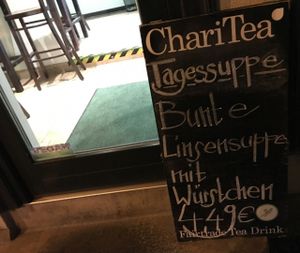 ChariTea
Tagessuppe
Bunte
Linsensuppe
mit
Würstchen
4,49€
Fairtrade Tea Drink
VEGAN